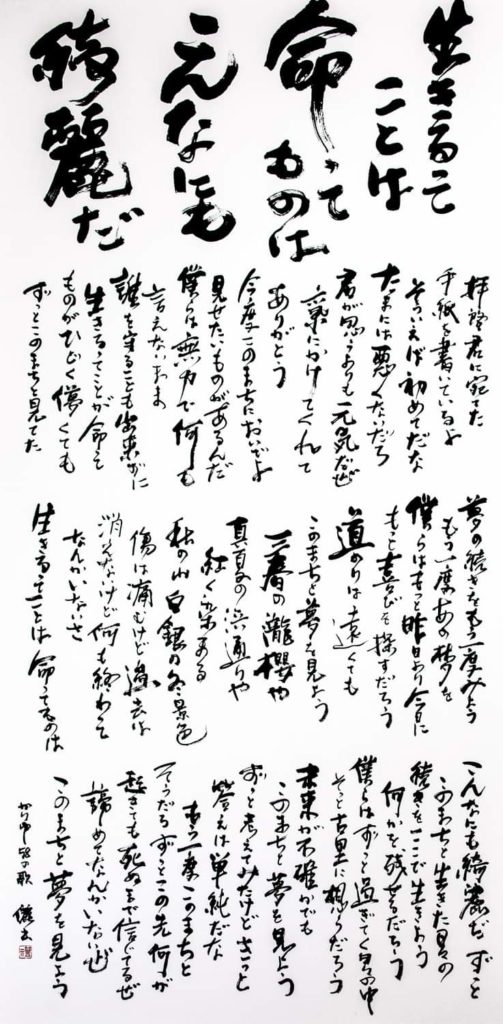 生きるって
ことは
命って
ものは
こんなにも
綺麗だ
拝啓君に宛た
手紙を書いているよ
そういえば初めてだな
たまには悪くないだろ
君が思うよりも元気だぜ
気にかけてくれて
ありがとう
今度このまちにおいでよ
見せたいものがあるんだ
僕らは無力で何も
言えないまま
誰を守ることも出来ずに
生きるってことが命って
ものがひどく儚くても
ずっとこのまちを見てた
夢の続きをもう一度みよう
もう一度あの夢を
僕らはきっと昨日より今日に
もっと喜びを探すだろう
道のりは遠くても
このまちと夢を見よう
三春の瀧櫻や
真夏の浜通りや
紅く染まる
秋の山白銀の冬景色
傷は痛むけど過去は
消えないけど何も終わって
なんかいないさ
生きるってことは命ってものは
こんなにも綺麗だ ずっと
このまちと生きた日々の
続きをここで生きよう
何かを残せるだろう
僕らはずっと過ぎてく日々の中
そっと古里に想うだろう
未来が不確かでも
このまちと夢を見よう
ずっと考えてみたけどきっと
答えは単純だな
もう一度このまちと
そうだろ ずっとこの先何が
起きても死ぬまで信じてるぜ
諦めてなんかいないぜ
このまちと夢を見よう
かりゆし58の歌